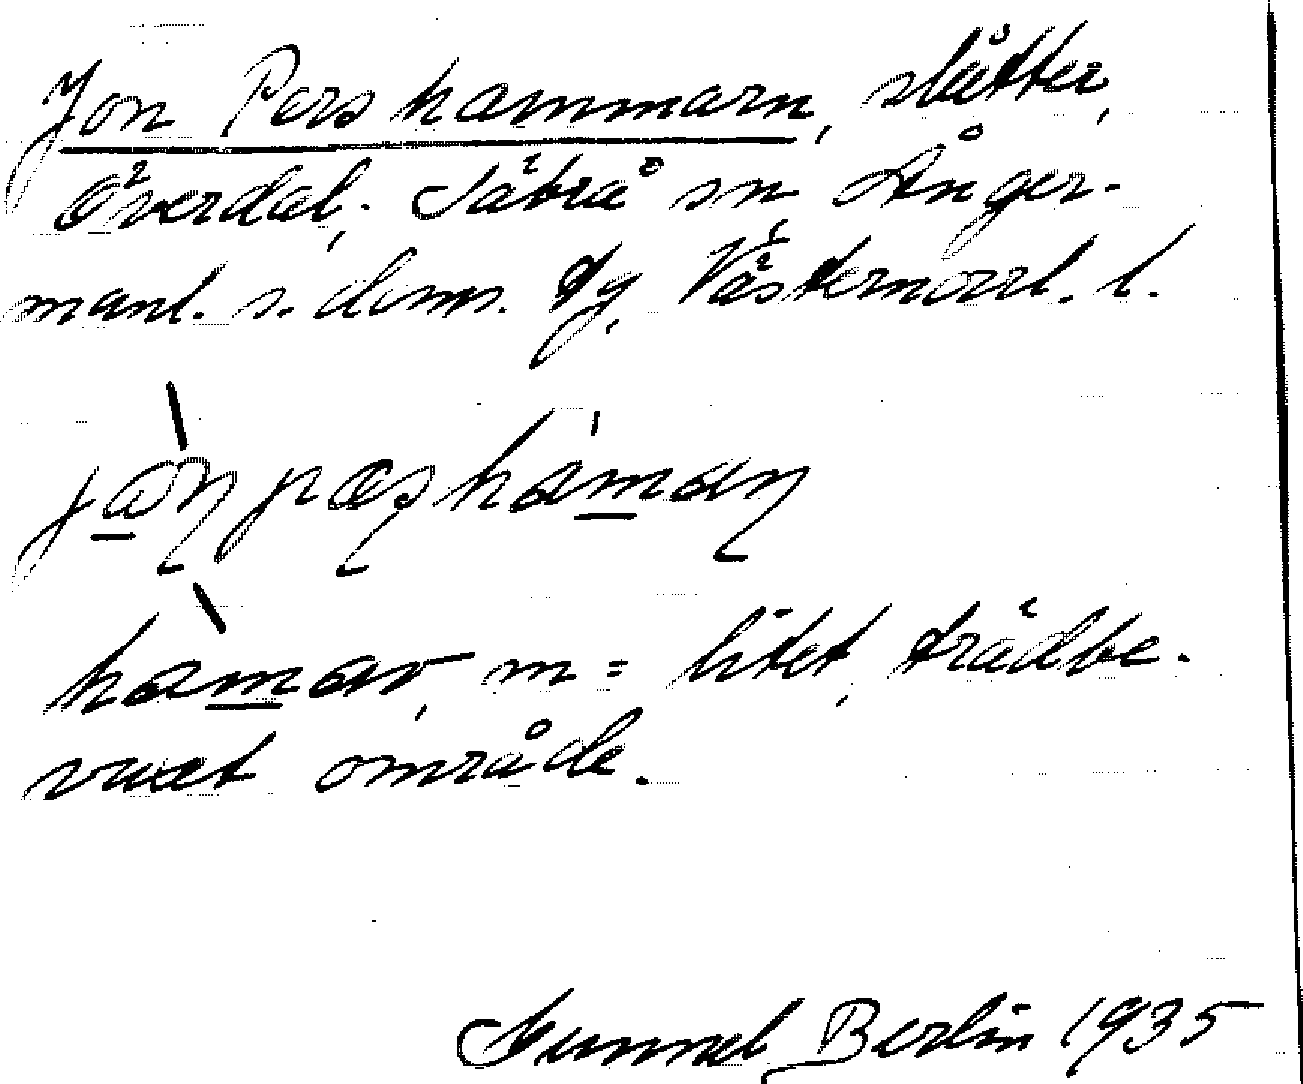 Jon Pers hammarn, slåtter,
Överdal, Säbrå sn Ånger-
manl. s. doms. tg, Västernorrl. l.
hamar, m = litet, trädbe-
vuxet område.
Gunnel Berlin 1935